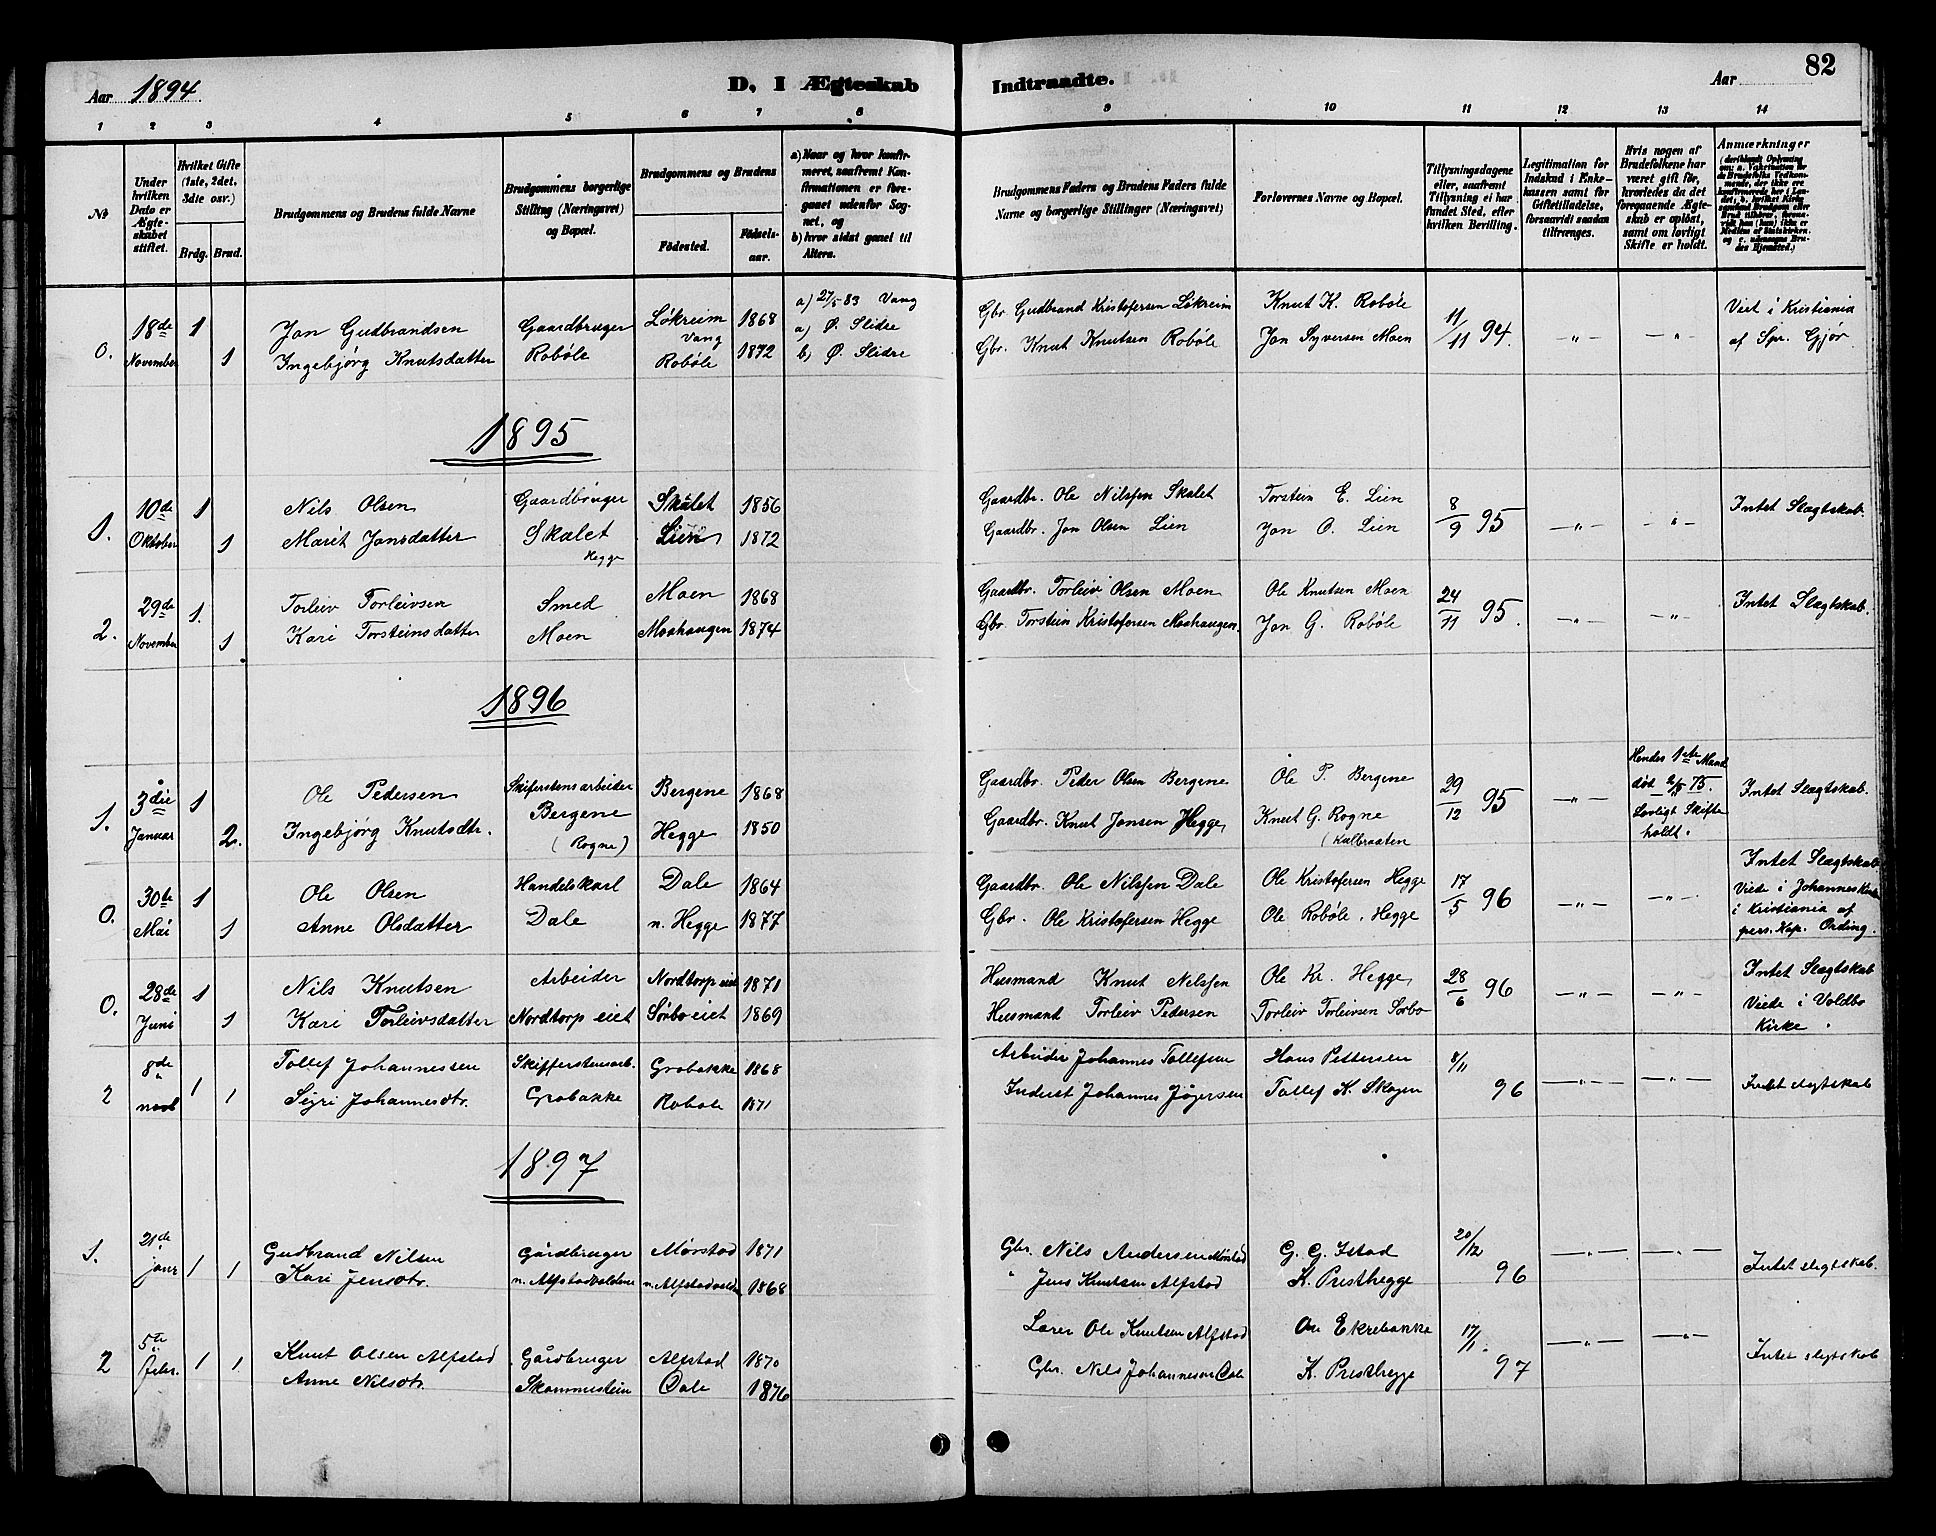 Aar 1894.
D. I Ægteskab Indtraadte.
Aar
82
1 2 3 4 5 6 7 8 9 10 11 12 13 14
No
Under hvilken Dato er Ægteskabet stiftet.
Hvilket Gifte (1ste, 2det, 3die osv.)
Brdg. Brud.
Brudgommens og Brudens fulde Navne
Brudgommens borgerlige Stilling (Næringsvei) og Bopæl.
Brudgommens og Brudens
Födested.
Födselsaar.
a) Naar og hvor konfirmeret, saafremt Konfirmationen er foregaaet udenfor Sognet, og
b) hvor sidst gaaet til Alters.
Brudgommens Faders og Brudens Faders fulde Navne og borgerlige Stillinger (Næringsvei)
Forlovernes Navne og Bopæl.
Tillysningsdagene eller, saafremt Tillysning ei har fundet Sted, efter hvilken Bevilling.
Legitimation for Indskud i Enkekassen samt for Giftetilladelse, forsaavidt saadan tiltrænges.
Hvis nogen af Brudefolkene har været gift før, hvorledes da det foregaaende Ægteskab er opløst, samt om lovligt Skifte er holdt.
Anmærkninger
0. 18de November 1 1
Jon Gudbrandsen
Ingebjörg Knutsdatter
Gaardbruger
Robøle
Løkreim Vang 1868
Robøle 1872
a) 27/5 83 Vang
a) Ø. Slidre
b) Ø. Slidre
Gbr. Gudbrand Kristofersen Løkreim
Gbr. Knut Knutsen Robøle
Knut K. Robøle
Jon Syversen Moen
11/11 94.
—„—
—„—
Viet i Kristiania
af Spr. Gjør.
1895
1. 10de Oktober 1 1
Nils Olsen
Marit Jonsdatter
Gaardbruger
Skalet
Hegge
Skalet 1856
Lien 1872
Gaardbr. Ole Nilssen Skalet
Gaardbr. Jon Olsen Lien
Torstein E. Lien
Jon O. Lien
8/9 95
—„—
—„—
Intet Slægtskab
2. 29de November 1. 1
Torleiv Torleivsen
Kari Torsteinsdatter
Smed
Moen
Moen 1868
Moahaugen 1874
Gaardbr. Torleiv Olsen Moen
Gbr. Torstein Kristofersen Moahaugen.
Ole Knutsen Moen
Jon G. Robøle
24/11 95.
—„—
—„—
Intet Slægtskab.
1896
1. 3die Januar 1 2.
Ole Pedersen
Ingebjörg Knutsdtr.
Skiferstensarbeider
Bergene
(Rogne)
Bergene 1868
Hegge 1850
Gaardbr. Peder Olsen Bergene
Gaardbr. Knut Jonsen Hegge
Ole P. Bergene
Knut G. Rogne
(Kulbraaten
29/12 95
—„—
Hendes 1ste Mand
død 2/5 75.
Lovligt Skifte
holdt.
Intet Slægtskab.
0. 30te Mai 1 1
Ole Olsen
Anne Olsdatter
Handelskarl
Dale
Dale 1864
n. Hegge 1877
Gaardbr. Ole Nilssen Dale
Gbr. Ole Kristofersen Hegge
Ole Kristofersen Hegge
Ole Robøle, Hegge
17/5 96
—„—
—„—
Intet Slægtskab
Viede i Johannes Kirke
i Kristiania af
pers. Kap. Ording.
0. 28de Juni 1 1
Nils Knutsen
Kari Torleivsdatter
Arbeider
Nordtorp eiet
Nordtorp eiet 1871
Sørbo eiet 1869
Husmand Knut Nilssen
Husmand Torleiv Pedersen
Ole Kr. Hegge
Torleiv Torleivsen Sørbo
28/6 96
—„—
—„—
Intet Slægtskab
Viede i Voldbo
Kirke.
2 8de novb 1 1
Tollef Johannessen
Sigri Johannesdtr.
Skifferstensarb.
Grobakke
Grobakke 1868
Robøle 1871
Arbeider Johannes Tollefsen
Inderst Johannes Jögersen
Hans Pettersen
Tollef K. Skogen
8/11 96
—„—
—„—
Intet slegtskab
1897
1. 21de janr 1 1
Gudbrand Nilsen
Kari Jensdtr.
Gårdbruger
n. Alfstadvolden
Mørstad 1871
n. Alfstadvolden 1868
Gbr. Nils Andersen Mørstad
„ Jens Knutsen Alfstad
G. G. Istad
K. Presthegge
20/12 96
—„—
—„—
Intet slegtskab.
2 5te Febr. 1 1
Knut Olsen Alfstad
Anne Nilsdtr.
Gårdbruger
Skammestein
Alfstad 1870
Dale 1876
Lærer Ole Knutsen Alfstad
Gbr. Nils Johannesen Dale
On Ekrebakke
K. Presthegge
17/1. 97
—„—
—„—
Intet slegtskab